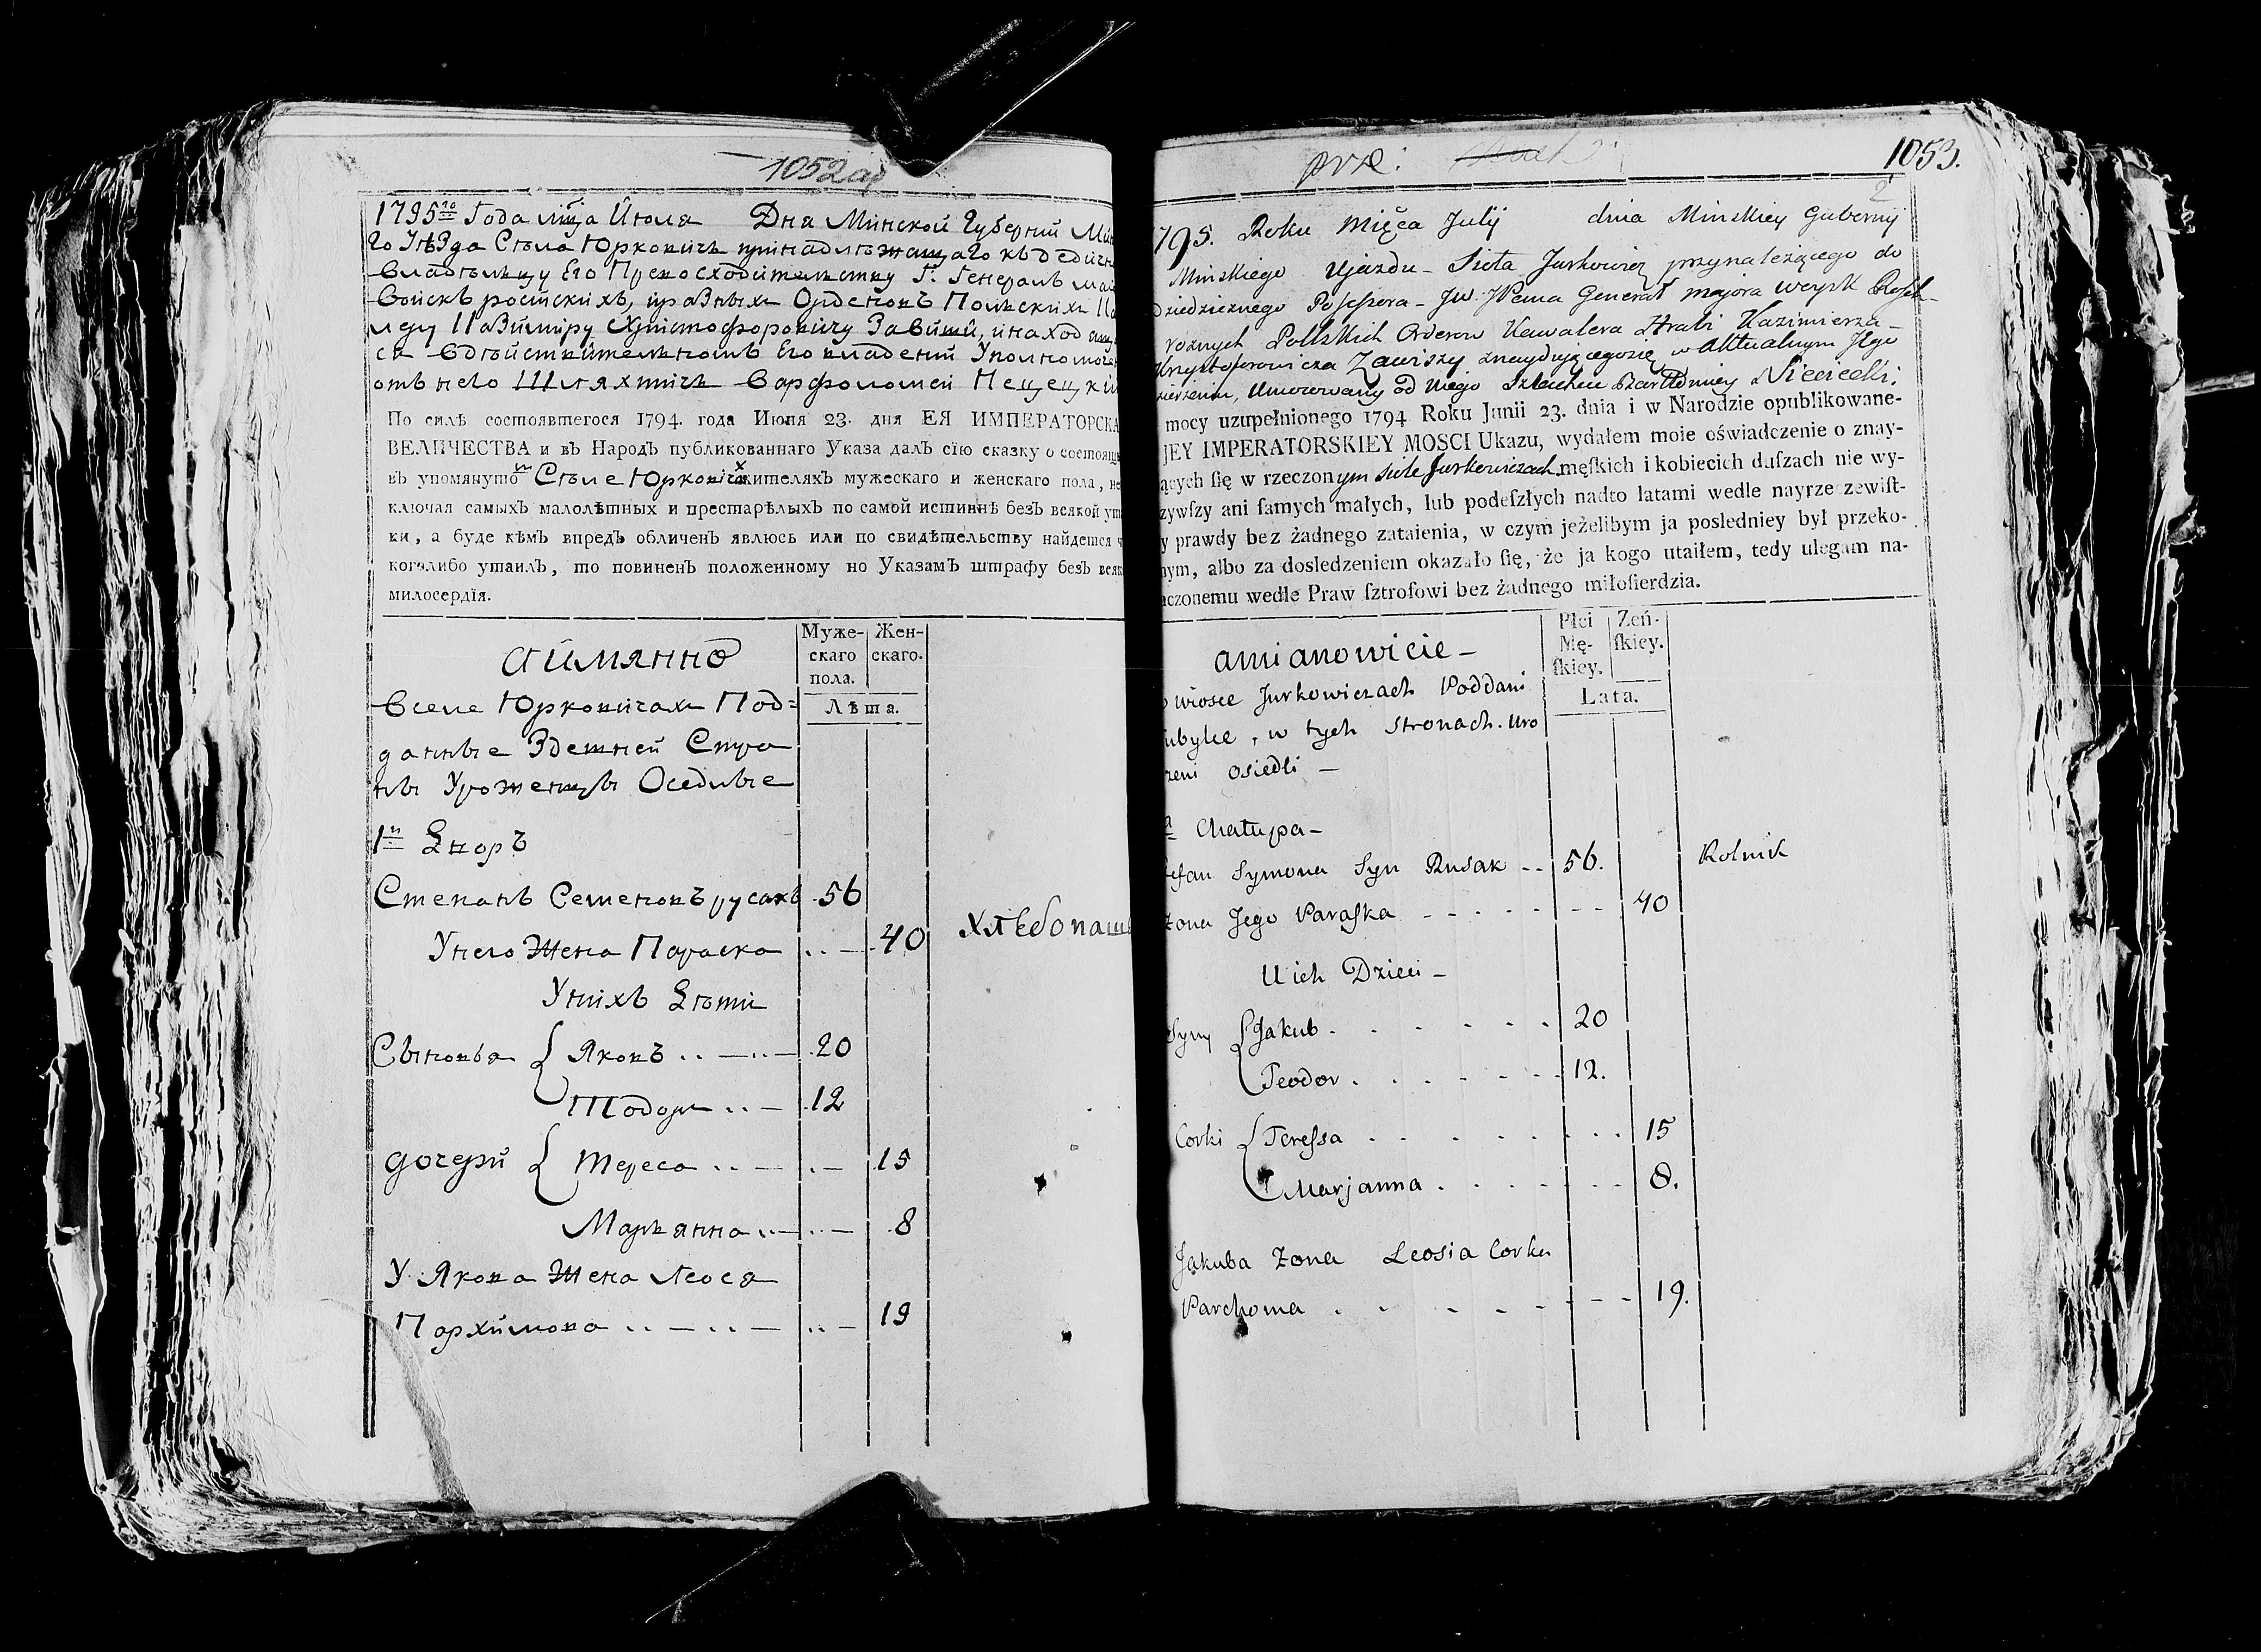 1052
1795го Года мца Июля Дня Минской Губернии Мин
го Уѣзда Сѣла Юрковичъ принадлѣжащаго къ дедичн
владѣльцу Его Превосходительству Г. Генералъ маи
Воискъ россискихъ, иразныхъ Орденовъ Полскихъ
Казимиру Христофоровичу Завиши, инаход
ся вдѣйствительномъ Его владении Уполномоч
отъ него Шляхтичъ Варфоломеи Нецецки
По силѣ состоявшегося 1794. года Июня 23. дня ЕЯ ИМПЕРАТОРСКА
ВЕЛИЧЕСТВА и въ Народъ публикованнаго Указа далъ сїю сказку о состоящ
въ упомянутомъ Сѣле Юрковичахъ жителяхъ мужескаго и женскаго пола, не
ключая самыхъ малолѣтныхъ и престарѣлыхъ по самой истиннѣ безъ всякой ут
ки, а буде кѣмъ впредъ обличенъ явлюсь или по свидѣтельству найдется ч
коголибо утаилъ, то повиненъ положенному по Указамъ штрафу безъ всяк
милосердїя.
аимянно
Муже-
скаго
пола.
Жен-
скаго.
Лѣта.
Вселе Юрковичахъ Под=
данные Здешней Стра
ны Уроженцы Оседлые
1й Дворъ
Степанъ Семеновъ русакъ 56
Унего Жена Параска .. — 40 Хлѣбопаш
Унихъ Дѣти
Сыновья { Яковъ .. — .. — 20
Тодоръ .. — 12
дочери { Тереса .. — .. — 15
Марьянна .. — .. — 8
У Якова Жена Леося
Пархимова .. — .. — .. — 19
1053.
2
795. Roku Mięca Julij dnia Minskiey Gubernij
Minskiego Ujazdu - Sioła Jurkowicz przynależącego do
Dziedzicznego Possessora - JW: JPana Generał majora woysk Rossk-
rożnych Polskich Orderow Kawalera Hrabi Kazimierza -
Krzysztoforowicza Zawiszy znaydującegosię w Aktualnym Jego
dzierżeniu, Umocowany od niego Szlachcic Bartłomiey Niecieckí.
mocy uzupełnionego 1794 Roku Junii 23. dnia i w Narodzie opublikowane-
JEY IMPERATORSKIEY MOSCI Ukazu, wydałem moie oświadczenie o znay-
ących ſię w rzeczonym siole Jurkowiczach męſkich i kobiecich duſzach nie wy-
zywſzy ani ſamych małych, lub podeſzłych nadto latami wedle nayrzeczewiſt-
y prawdy bez żadnego zataienia, w czym jeżelibym ja posledniey był przeko-
nym, albo za dosledzeniem okazało ſię, że ja kogo utaiłem, tedy ulegam na-
aczonemu wedle Praw ſztrofowi bez żadnego miłoſierdzia.
amianowicie -
Płci
Mę-
ſkiey.
Zeń-
ſkiey.
Lata.
wiosce Jurkowiczach Poddani
ubylce, w tych stronach. uro
zeni osiedli -
a Chałupa -
tefan Symona Syn Rusak .. 56. Rolnik
żona Jego Paraſka - - - - - - - 40
U ich Dzieci -
Syny { Jakub . . . . . . . 20
Teodor . . . . . . . 12.
Corki { Tereſsa . . . . . . . . 15
Marjanna . . . . . . . 8.
Jakuba żona Leosia Corka
Parchoma . . . . . . . . 19.